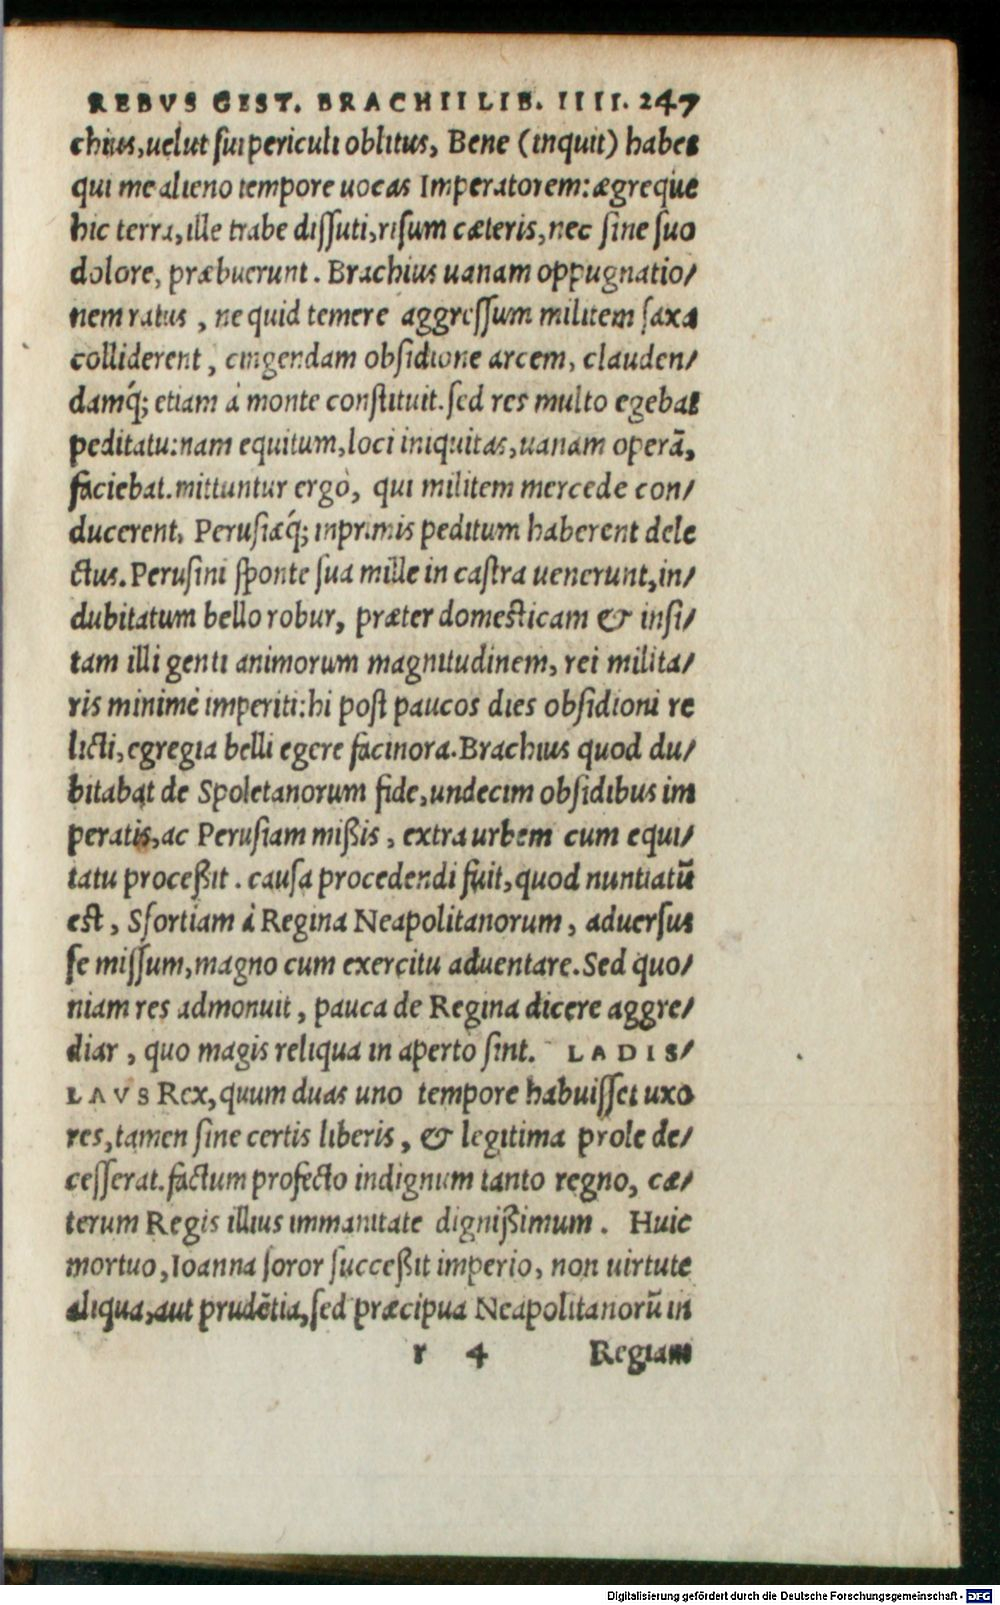 REBVS GEST. BRACHII LIB. IIII. 247
chius, uelut sui periculi oblitus, Bene (inquit) habet
qui me alieno tempore uocas Imperatorem: ægreque
hic terra, ille trabe dissuti, risum cæteris, nec sine suo
dolore, præbuerunt. Brachius uanam oppugnatio/
nem ratus, ne quid temere aggressum militem saxa
colliderent, cingendam obsidione arcem, clauden/
damq́; etiam à monte constituit. sed res multo egebat
peditatu: nam equitum, loci iniquitas, uanam operā,
faciebat. mittuntur ergò, qui militem mercede con/
ducerent, Perusiæq́; inprimis peditum haberent dele
ctus. Perusini sponte sua mille in castra uenerunt, in/
dubitatum bello robur, præter domesticam & insi/
tam illi genti animorum magnitudinem, rei milita/
ris minimè imperiti: hi post paucos dies obsidioni re
licti, egregia belli egere facinora. Brachius quod du/
bitabat de Spoletanorum fide, undecim obsidibus im
peratis, ac Perusiam mißis, extra urbem cum equi/
tatu proceßit. causa procedendi fuit, quod nuntiatū
est, Sfortiam à Regina Neapolitanorum, aduersus
se missum, magno cum exercitu aduentare. Sed quo/
niam res admonuit, pauca de Regina dicere aggre/
diar, quo magis reliqua in aperto sint. LADIS/
LAVS Rex, quum duas uno tempore habuisset uxo
res, tamen sine certis liberis, & legitima prole de/
cesserat. factum profecto indignum tanto regno, cæ/
terum Regis illius immanitate dignißimum. Huic
mortuo, Ioanna soror succeßit imperio, non uirtute
aliqua, aut prudētia, sed præcipua Neapolitanorū in
r 4 Regiam
Digitalisierung gefördert durch die Deutsche Forschungsgemeinschaft - DFG